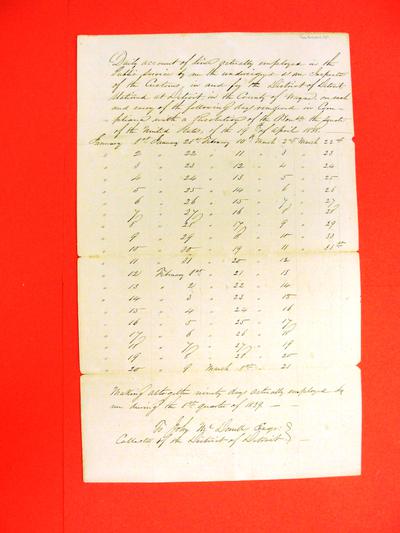 Daily account of time actually employed in the
Public Service by me the undersigned as an Inspector
of the Customs, in and for the District of Detroit
Stationed at Detroit in the County of Wayne, on each
and every of the following days rendered in Com-
pliance with a Resolution of the Honble the Senate
of the United States, of the 19th of April 1838.
January 1st January 21st February 10th March 2nd March 22nd
" 2 " 22 " 11 " 3 " 23
" 3 " 23 " 12 " 4 " 24
" 4 " 24 " 13 " 5 " 25
" 5 " 25 " 14 " 6 " 26
" 6 " 26 " 15 " 7 " 27
" 7 " 27 " 16 " 8 " 28
" 8 " 28 " 17 " 9 " 29
" 9 " 29 " 18 " 10 " 30
" 10 " 30 " 19 " 11 " 31st
" 11 " 31 " 20 " 12
" 12 February 1st " 21 " 13
" 13 " 2 " 22 " 14
" 14 " 3 " 23 " 15
" 15 " 4 " 24 " 16
" 16 " 5 " 25 " 17
" 17 " 6 " 26 " 18
" 18 " 7 " 27 " 19
" 19 " 8 " 28 " 20
" 20 " 9 March 1st " 21
Making altogether ninety days actually employed by
me during the 1st quarter of 1839.
To John McDonell Esqr.
Collector of the District of Detroit